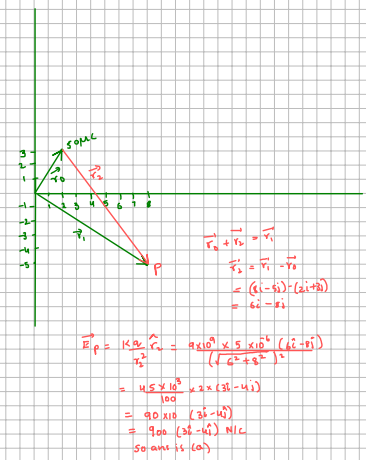 50μC
3
2
1
-1
-2
-3
-4
-5
1 2 3 4 5 6 7 8
r⃗0
r⃗2
r⃗1
P
r⃗0 + r⃗2 = r⃗1
r⃗2 = r⃗1 - r⃗0
= (8i-5j)-(2i+3j)
= 6i - 8j
E⃗p = Kq/r2² r̂2 = 9×10⁹ × 5 ×10⁻⁶ (6î-8ĵ) / (√(6²+8²))²
= 45×10³/100 × 2×(3î-4ĵ)
= 90×10 (3î-4ĵ)
= 900 (3î-4ĵ) N/C
So ans is (a)